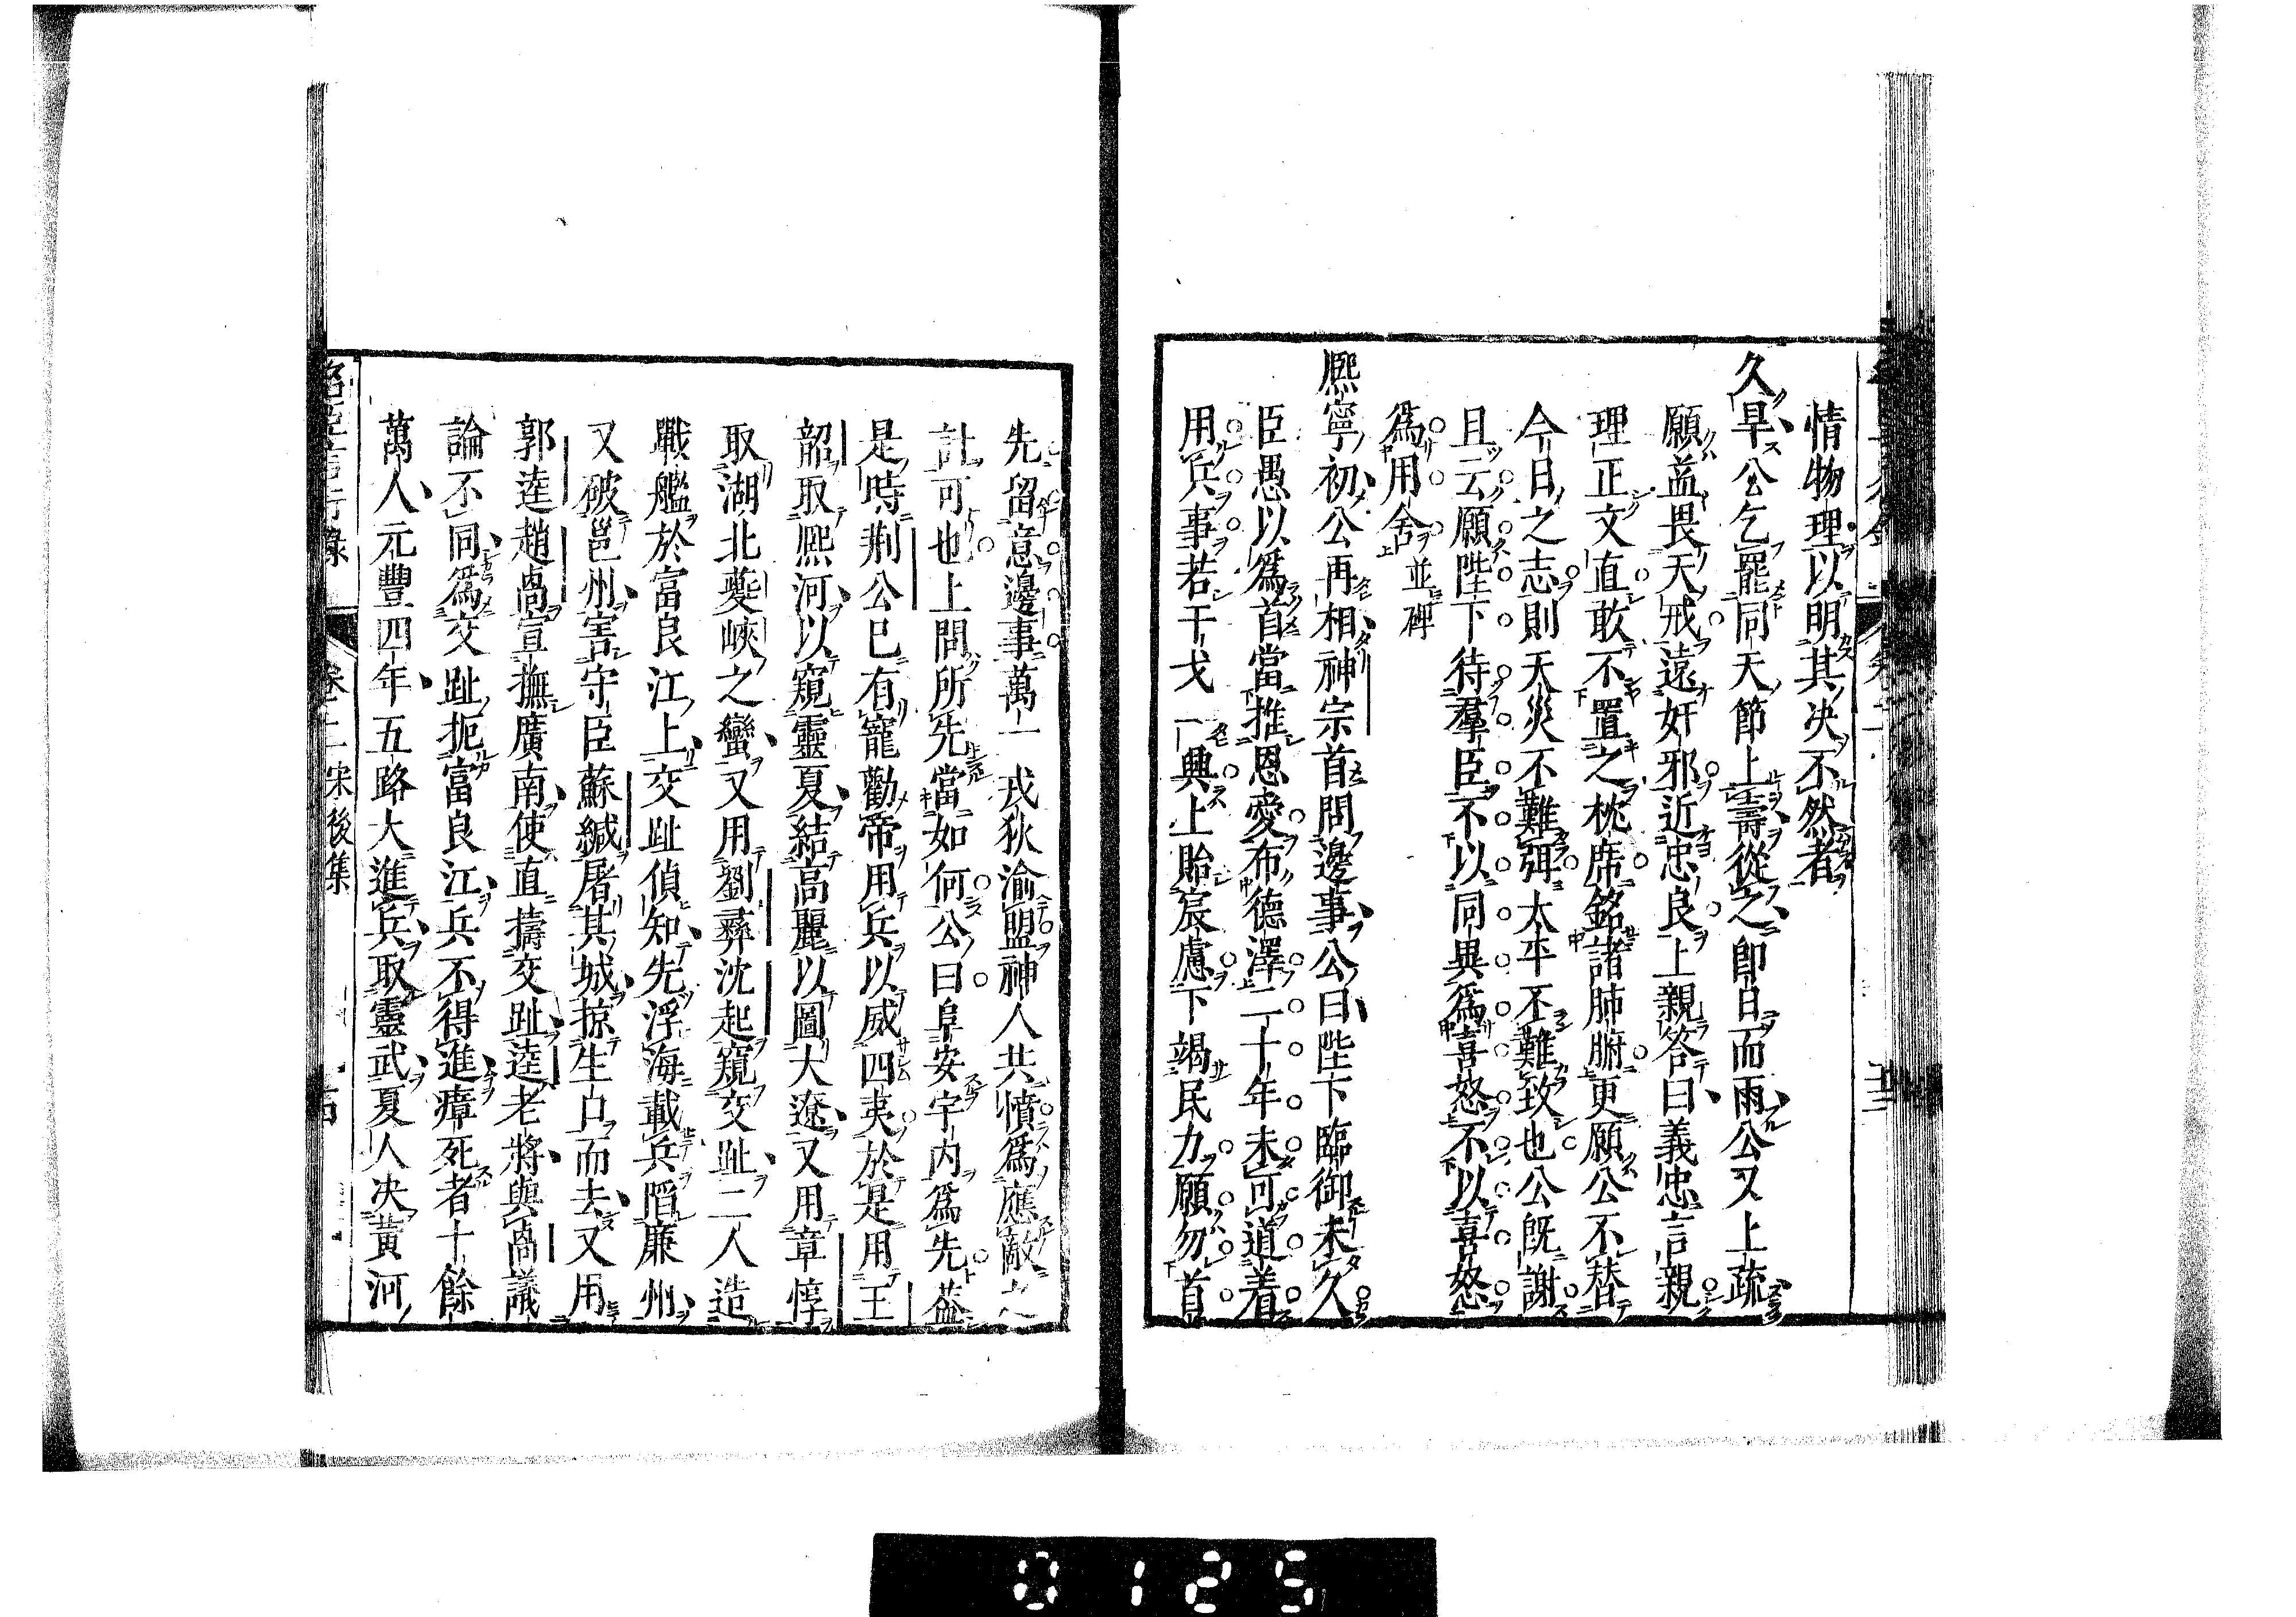 情物理以明其决不然者
久旱公乞罷同天節上壽從之即日而雨公又上疏
願益畏天戒遠奸邪近忠良上親答曰義忠言親
理正文直敢不置之枕席銘諸肺腑更願公不替
今日之志則天災不難弭太平不難致也公既謝
且云願陛下待羣臣不以同異爲喜怒不以喜怒
爲用舍並碑
熈寧初公再相神宗首問邊事公曰陛下臨御未久
臣愚以爲首當推恩愛布德澤二十年未可道着
用兵事若干戈一興上貽宸慮下竭民力願勿首
先留意邊事萬一戎狄渝盟神人共憤爲應敵之
計可也上問所先當如何公曰阜安宇内爲先葢
是時荆公已有寵勸帝用兵以威四夷於是用王
韶取熈河以窺靈夏結高麗以圖大遼又用章惇
取湖北夔峽之蠻又用劉彞沈起窺交趾二人造
戰艦於富良江上交趾偵知先浮海載兵陷廉州
又破邕州害守臣蘇緘屠其城掠生口而去又用
郭逵趙卨宣撫廣南使直擣交趾逵老將與卨議
論不同爲交趾扼富良江兵不得進瘴死者十餘
萬人元豐四年五路大進兵取靈武夏人决黃河
名臣言行錄 卷二 宋後集
0125